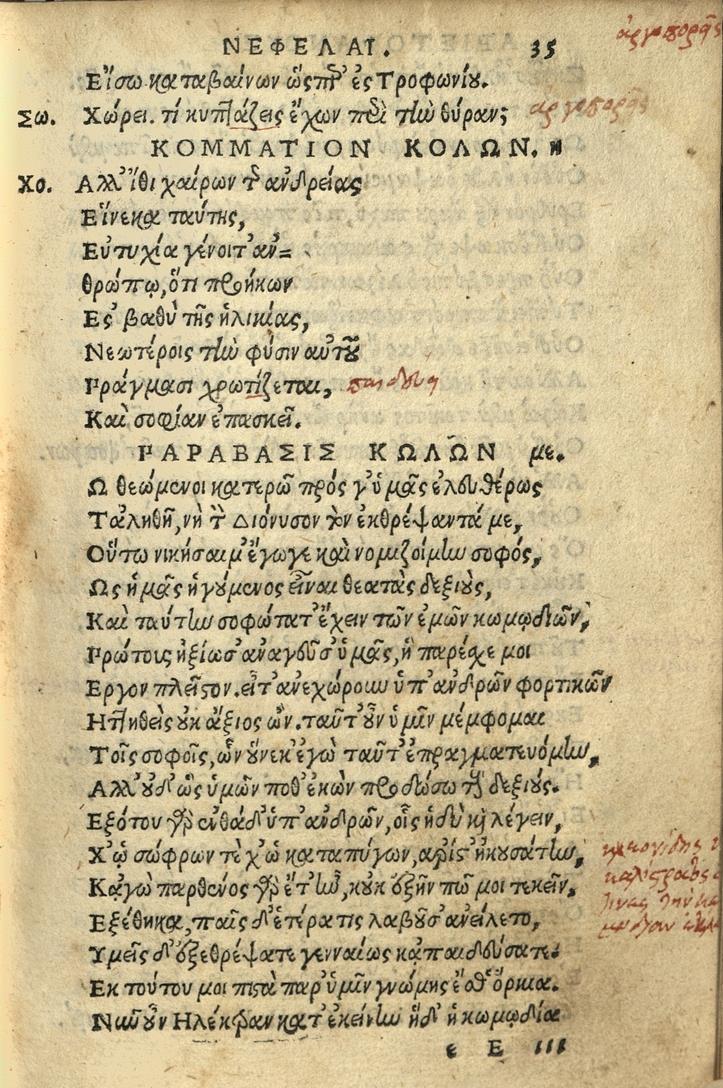 ΝΕΦΕΛΑΙ. 35
Εἴσω καταβαίνων ὥσπερ ἐς Τροφωνίου.
Σω. Χώρει. τί κυπτάζεις ἔχων περὶ τὴν θύραν;
ΚΟΜΜΑΤΙΟΝ ΚΟΛΩΝ. η
Χο. Αλλ' ἴθι χαίρων τῆς ἀνδρείας
Εἵνεκα ταύτης,
Εὐτυχία γένοιτ' ἀν=
θρώπῳ, ὅτι προήκων
Ες βαθὺ τῆς ἡλικίας,
Νεωτέροις τὴν φύσιν αὑτοῦ
Πράγμασι χρωτίζεται,
Καὶ σοφίαν ἐπασκεῖ.
ΠΑΡΑΒΑΣΙΣ ΚΩΛΩΝ με.
Ω θεώμενοι κατερῶ πρός γ' ὑμᾶς ἐλευθέρως
Τἀληθῆ, νὴ τὸν Διόνυσον τὸν ἐκθρέψαντά με,
Οὕτω νικήσαιμ' ἔγωγε καὶ νομιζοίμην σοφός,
Ως ὑμᾶς ἡγούμενος εἶναι θεατὰς δεξιοὺς,
Καὶ ταύτην σοφώτατ' ἔχειν τῶν ἐμῶν κωμῳδιῶν,
Πρώτους ἠξίωσ' ἀναγεῦσ' ὑμᾶς, ἣ παρέσχε μοι
Εργον πλεῖστον. εἶτ' ἀνεχώρουν ὑπ' ἀνδρῶν φορτικῶν
Ηττηθεὶς οὐκ ἄξιος ὤν. ταῦτ' οὖν ὑμῖν μέμφομαι
Τοῖς σοφοῖς, ὧν οὕνεκ' ἐγὼ ταῦτ' ἐπραγματευόμην,
Αλλ' οὐδ' ὣς ὑμῶν ποθ' ἑκὼν προδώσω τοὺς δεξιούς.
Εξότου γὰρ ἐνθάδ' ὑπ' ἀνδρῶν, οἷς ἡδὺ καὶ λέγειν,
Χ' ὡ σώφρων τε χ' ὡ καταπύγων, ἄριστ' ἠκουσάτην,
Κἀγὼ παρθένος γὰρ ἔτ' ἦν, κοὐκ ἐξῆν πώ μοι τεκεῖν,
Εξέθηκα, παῖς δ' ἑτέρα τις λαβοῦσ' ἀνείλετο,
Υμεῖς δ' ἐξεθρέψατε γενναίως κἀπαιδεύσατε.
Εκ τούτου μοι πιστὰ παρ' ὑμῖν γνώμης ἔσθ' ὅρκια.
Νῦν οὖν Ηλέκτραν κατ' ἐκείνην ἥδ' ἡ κωμῳδία
ε E iii